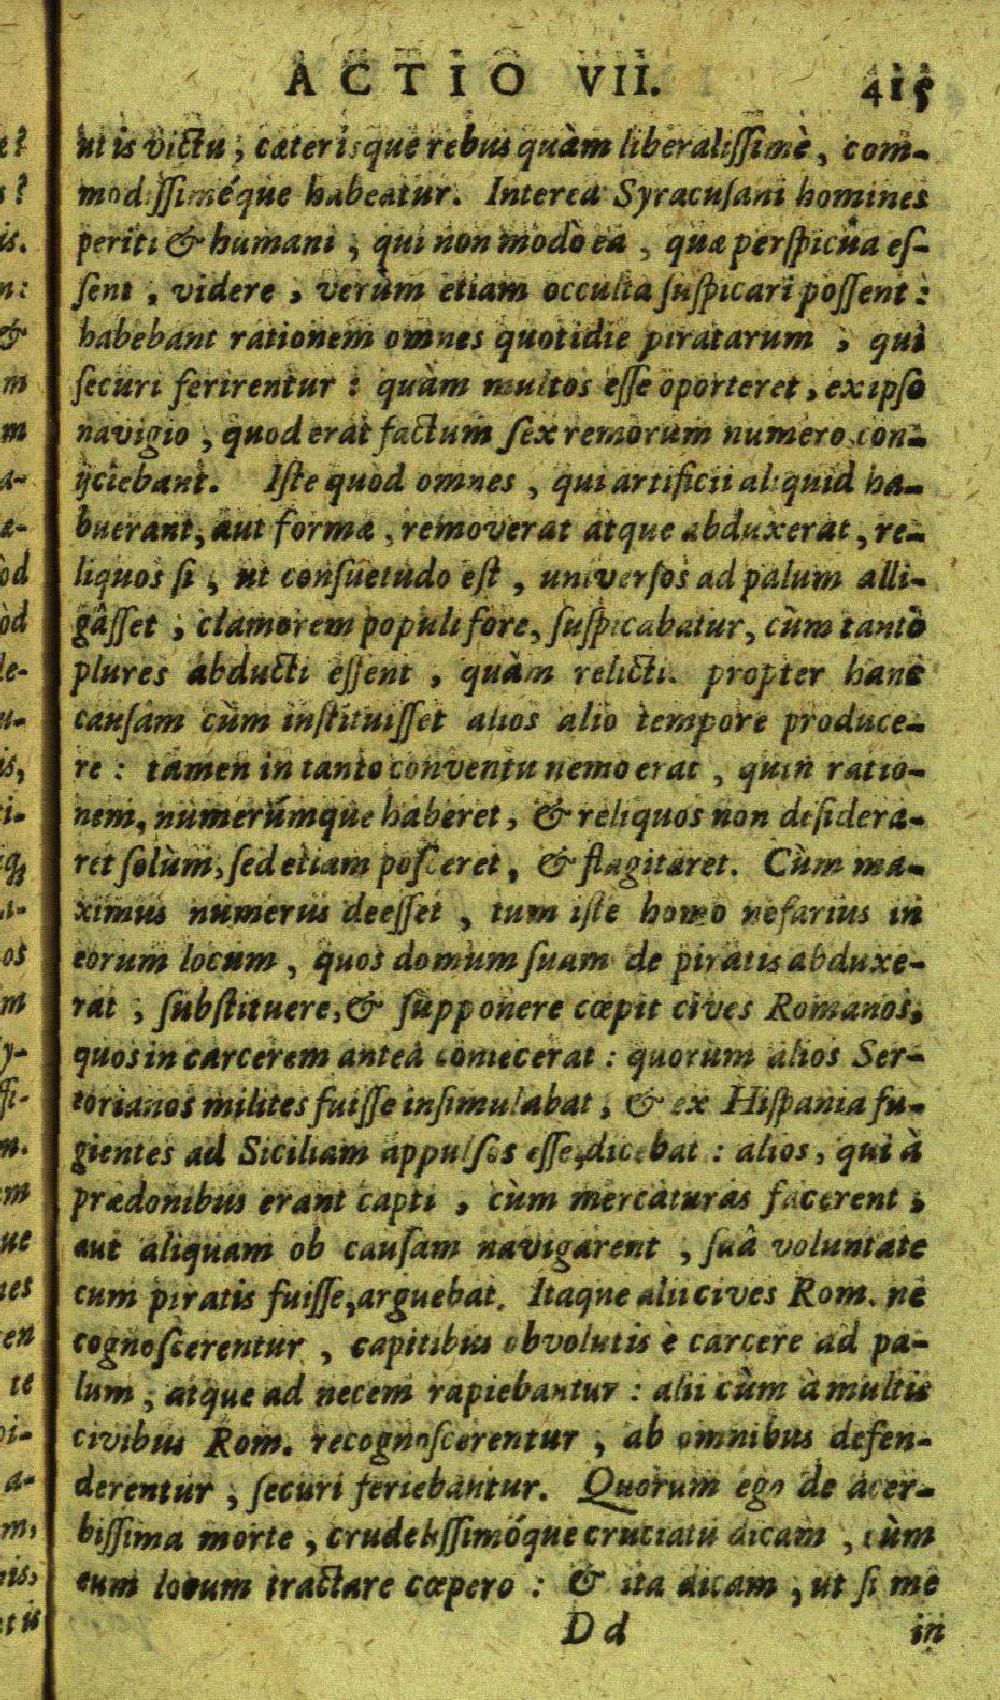 ACTIO VII. 415
ut is victu, cæterisque rebus quàm liberalissimè, com-
modissiméque habeatur. Interea Syracusani homines
periti & humani, qui non modò ea, quæ perspicua es-
sent, videre, verùm etiam occulta suspicari possent:
habebant rationem omnes quotidie piratarum, qui
securi ferirentur: quàm multos esse oporteret, ex ipso
navigio, quod erat factum sex remorum numero con-
ijciebant. Iste quod omnes, qui artificii aliquid ha-
buerant, aut formæ, removerat atque abduxerat, re-
liquos si, ut consuetudo est, universos ad palum alli-
gâsset, clamorem populi fore, suspicabatur, cùm tantò
plures abducti essent, quàm relicti. propter hanc
causam cùm instituisset alios alio tempore produce-
re: tamen in tanto conventu nemo erat, quin ratio-
nem, numerúmque haberet, & reliquos non desidera-
ret solùm, sed etiam posceret, & flagitaret. Cùm ma-
ximus numerus deesset, tum iste homo nefarius in
eorum locum, quos domum suam de piratis abduxe-
rat, substituere, & supponere cœpit cives Romanos,
quos in carcerem anteà coniecerat: quorum alios Ser-
torianos milites fuisse insimulabat, & ex Hispania fu-
gientes ad Siciliam appulsos esse, dicebat: alios, qui à
prædonibus erant capti, cùm mercaturas facerent,
aut aliquam ob causam navigarent, suâ voluntate
cum piratis fuisse, arguebat. Itaque alii cives Rom. ne
cognoscerentur, capitibus obvolutis è carcere ad pa-
lum, atque ad necem rapiebantur: alii cùm à multis
civibus Rom. recognoscerentur, ab omnibus defen-
derentur, securi feriebantur. Quorum ego de acer-
bissima morte, crudelissimóque cruciatu dicam, cùm
eum locum tractare cœpero: & ita dicam, ut si me
Dd in